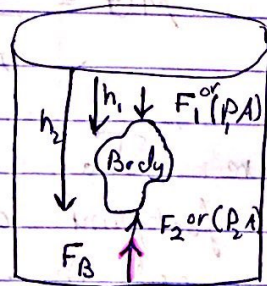 h₁ F₁ or (P₁A)
h₂
Body
F₂ or (P₂A)
F_B